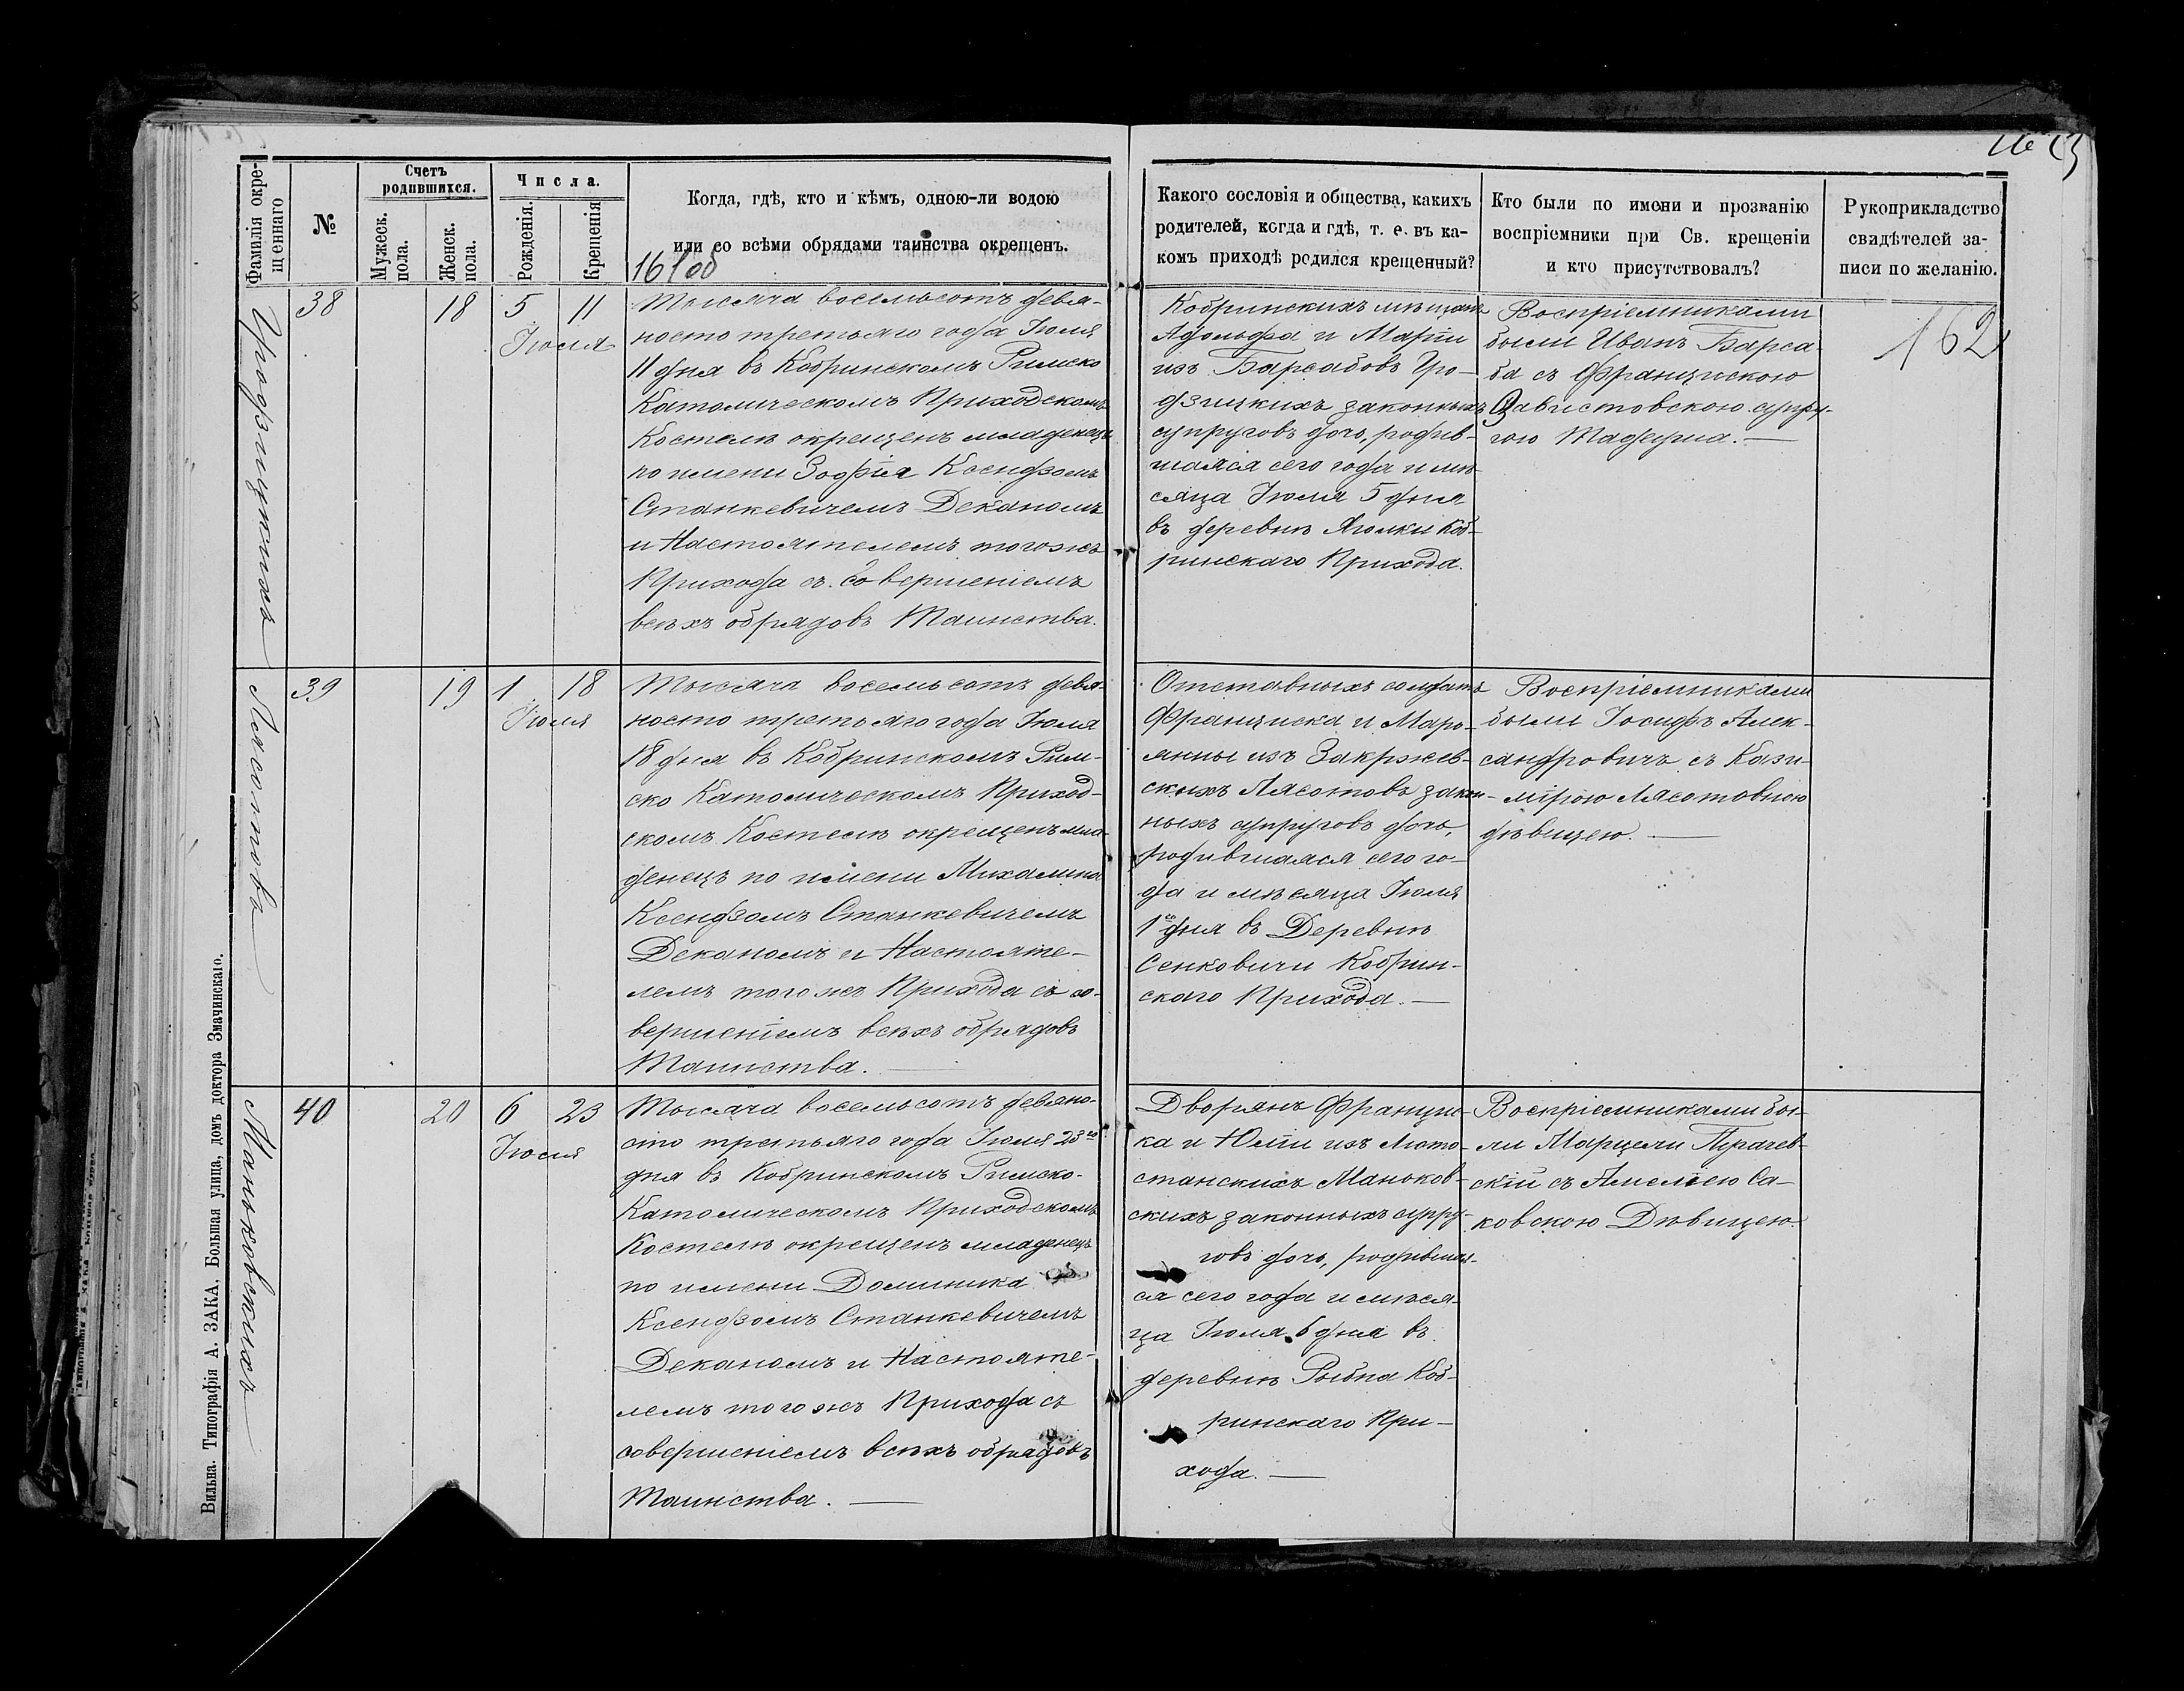 Фамилія окре-
щеннаго
№
Счетъ
родившихся.
Мужеск.
пола.
Женск.
пола.
Числа.
Рожденія.
Крещенія
Когда, гдѣ, кто и кѣмъ, одною-ли водою
или со всѣми обрядами таинства окрещенъ.
Какого сословія и общества, какихъ
родителей, когда и гдѣ, т. е. въ ка-
комъ приходѣ родился крещенный?
Кто были по имени и прозванію
воспріемники при Св. крещеніи
и кто присутствовалъ?
Рукоприкладство
свидѣтелей за-
писи по желанію.
Гродзицкихъ
38
18
5
11
Іюля
Тысяча восемьсотъ девя-
носто третьяго года Іюля
11 дня въ Кобринскомъ Римско
Католическомъ Приходскомъ
Костелѣ окрещенъ младенецъ
по имени Зофія Ксендзомъ
Станкевичемъ Деканомъ
и Настоятелемъ тогожъ
Прихода съ совершеніемъ
всѣхъ обрядовъ Таинства.
Кобринскихъ мѣщанъ
Адольфа и Маріи
изъ Барсабовъ Гро-
дзицкихъ законныхъ
супруговъ дочь, родив-
шаяся сего года и мѣ-
сяца Іюля 5 дня
въ деревнѣ Яголки Коб-
ринскаго Прихода.
Воспріемниками
были Иванъ Барса-
ба съ Францискою
Завистовскою супру-
гою Тадеуша.
162
Лясотовъ
39
19
1
18
Іюля
Тысяча восемьсотъ девя-
носто третьяго года Іюля
18 дня въ Кобринскомъ Рим-
ско Католическомъ Приход-
скомъ Костелѣ окрещенъ мла-
денецъ по имени Михалина
Ксендзомъ Станкевичемъ
Деканомъ и Настояте-
лемъ тогожъ Прихода съ со-
вершеніемъ всѣхъ обрядовъ
Таинства.
Отставныхъ солдатъ
Франциска и Марь-
янны изъ Закржев-
скихъ Лясотовъ закон-
ныхъ супруговъ дочь,
родившаяся сего го-
да и мѣсяца Іюля
1го дня въ Деревнѣ
Сенковичи Кобрин-
скаго Прихода.
Воспріемниками
были Іосифъ Алек-
сандровичъ съ Кази-
мірою Лясотовною
дѣвицею.
Маньковскихъ
40
20
6
23
Іюля
Тысяча восемьсотъ девяно-
сто третьяго года Іюля 23го
дня въ Кобринскомъ Римско-
Католическомъ Приходскомъ
Костелѣ окрещенъ младенецъ
по имени Доминика
Ксендзомъ Станкевичемъ
Деканомъ и Настояте-
лемъ тогожъ Прихода съ
совершеніемъ всѣхъ обрядовъ
Таинства.
Дворянъ Францис-
ка и Юліи изъ Люто-
станскихъ Маньков-
скихъ законныхъ супру-
говъ дочь, родившая-
ся сего года и мѣся-
ца Іюля 6 дня въ
деревнѣ Рыбна Коб-
ринскаго При-
хода.
Воспріемниками бы-
ли Марцели Пурачев-
скій съ Амеліею Са-
ковскою Дѣвицею.
Вильна. Типографія А. ЗАКА, Большая улица, домъ доктора Значинскаго.